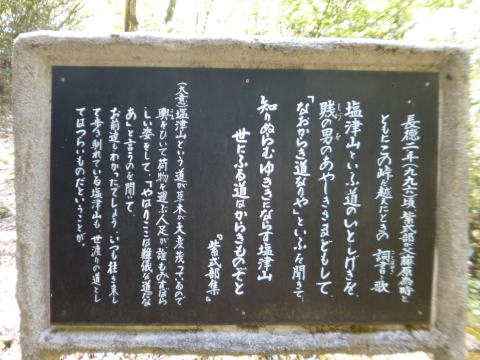 長徳二年(九九六)頃、紫式部が父藤原為時と
ともにこの峠を越えたときの 詞書と歌
塩津山といふ道のいとしげきを、
賤の男のあやしきさまどもして
「なおからき道なりや」といふを聞きて、
知りぬらむゆききにならす塩津山
世にふる道はからきものぞと
『紫式部集』
(大意)塩津山という道が草木が大変茂っているので
輿をひいて荷物を運ぶ人足が誰もみすぼら
しい姿をして、「やはりここは難儀な道だな
あ」と言うのを聞いて、
お前達もわかったでしょう。いつも往き来し
て歩き馴れている塩津山も、世渡りの道とし
てはつらいものだということが。